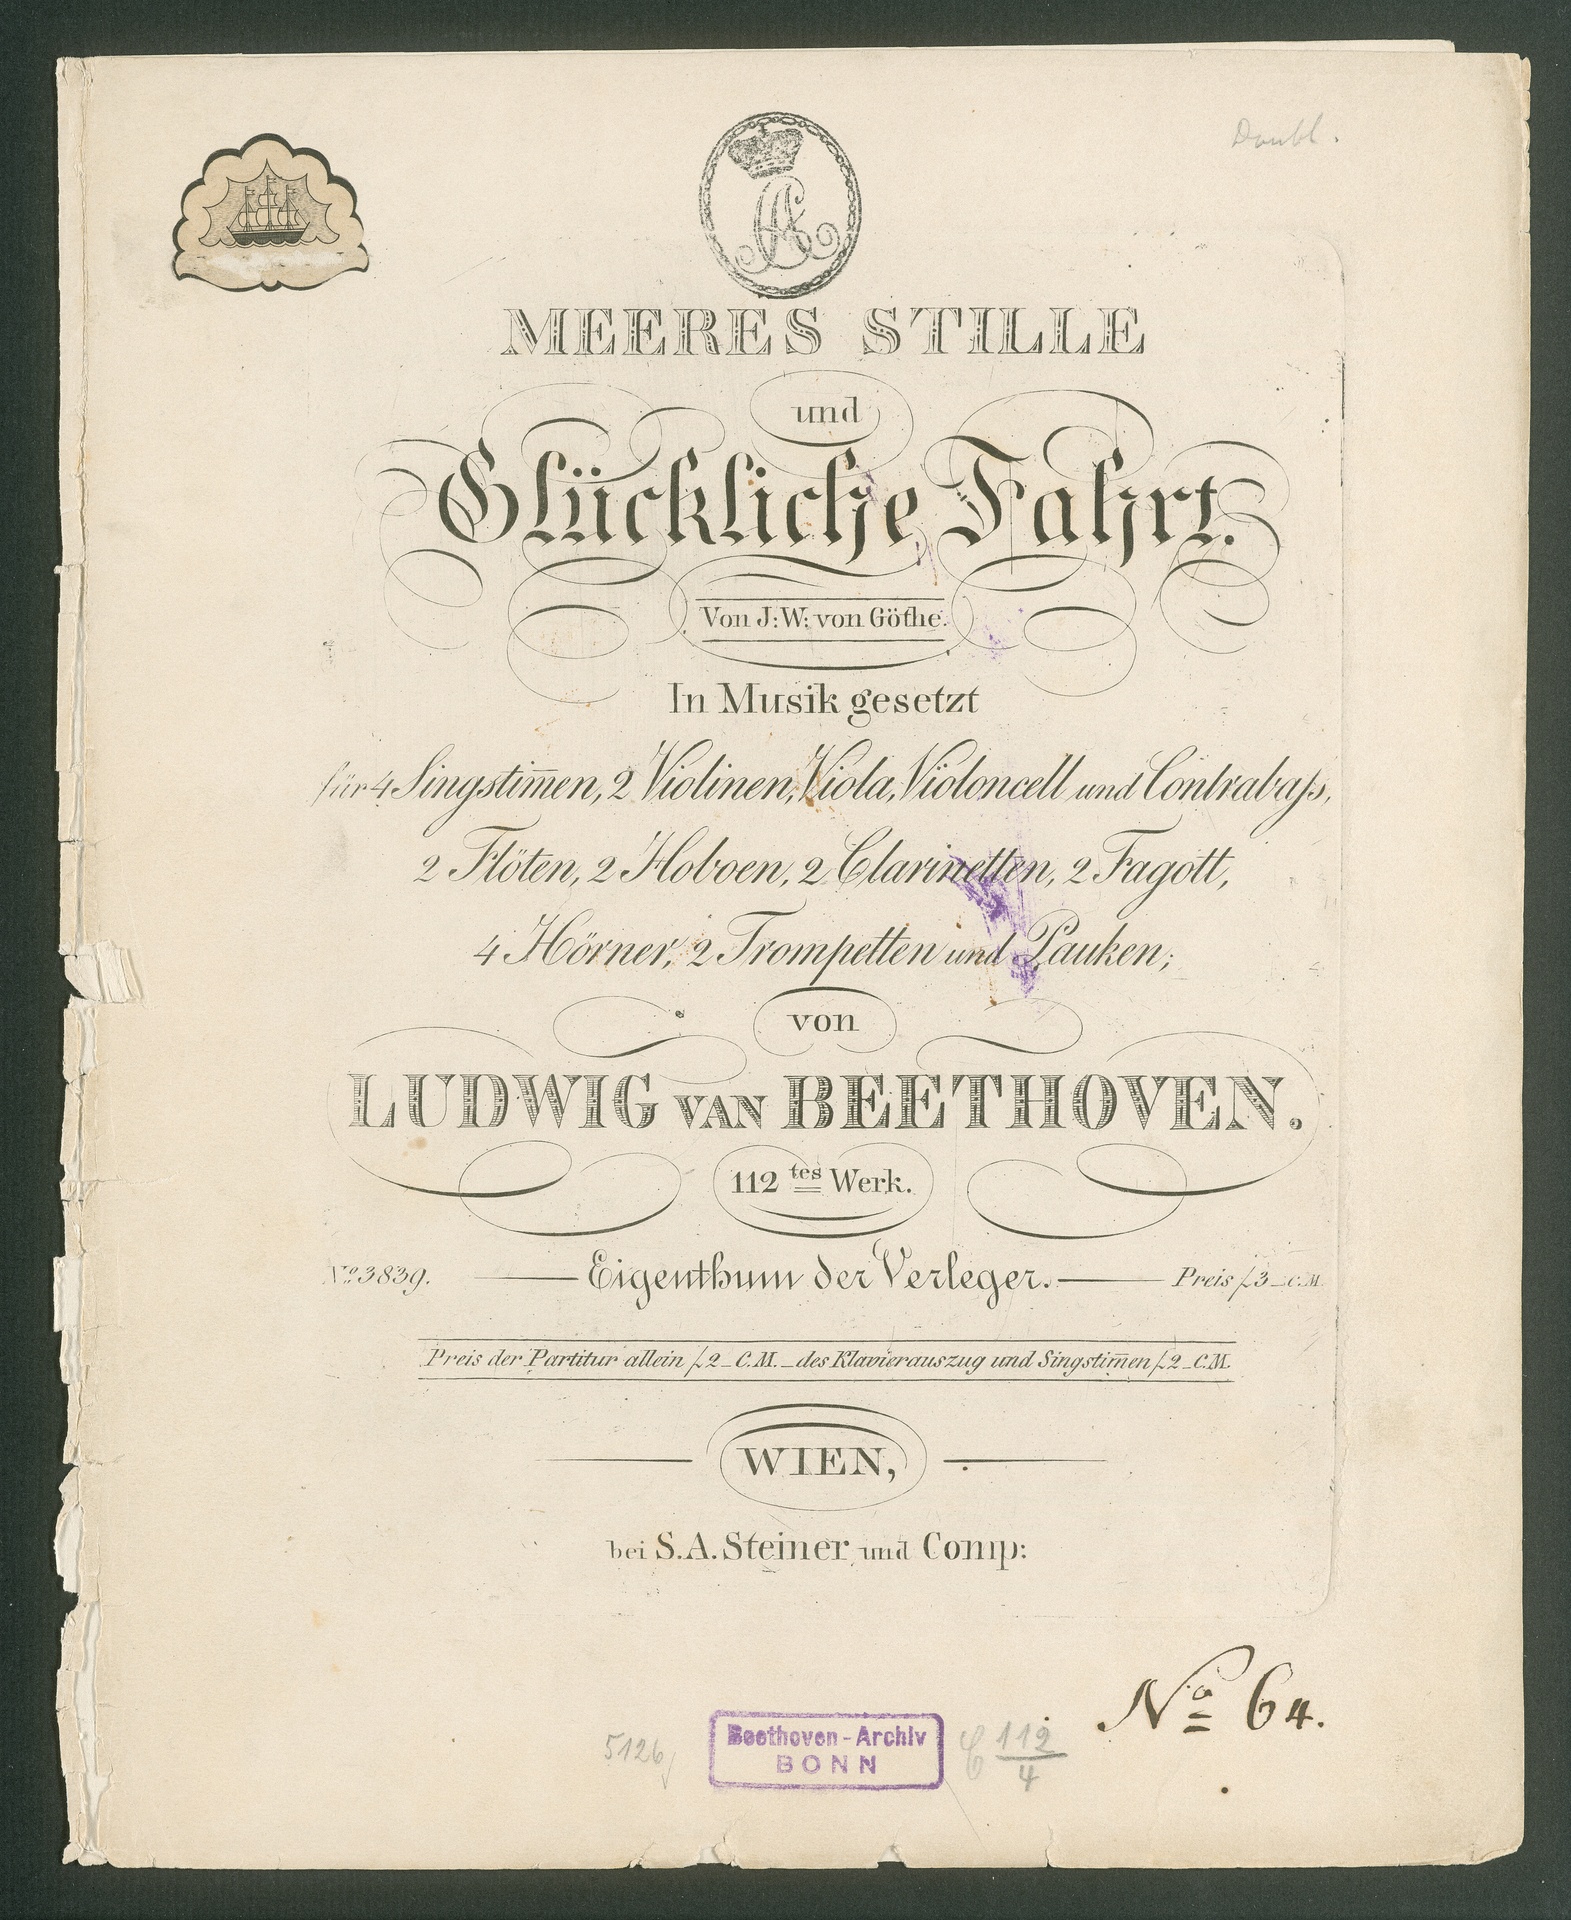 Doubl.
MEERES STILLE
und
Glückliche Fahrt.
Von J: W: von Göthe.
In Musik gesetzt
für 4 Singstim̅en, 2 Violinen, Viola, Violoncell und Contrabaſs,
2 Flöten, 2 Hoboen, 2 Clarinetten, 2 Fagott,
4 Hörner, 2 Trompetten und Pauken;
von
LUDWIG VAN BEETHOVEN.
112 tes Werk.
No 3839. Eigenthum der Verleger. Preis f. 3 _ C.M.
Preis der Partitur allein f. 2 _ C.M. _ des Klavierauszug und Singstim̅en f. 2 _ C.M.
WIEN,
bei S.A. Steiner und Comp:
No 64.
5126 Beethoven-Archiv C 112/4
BONN